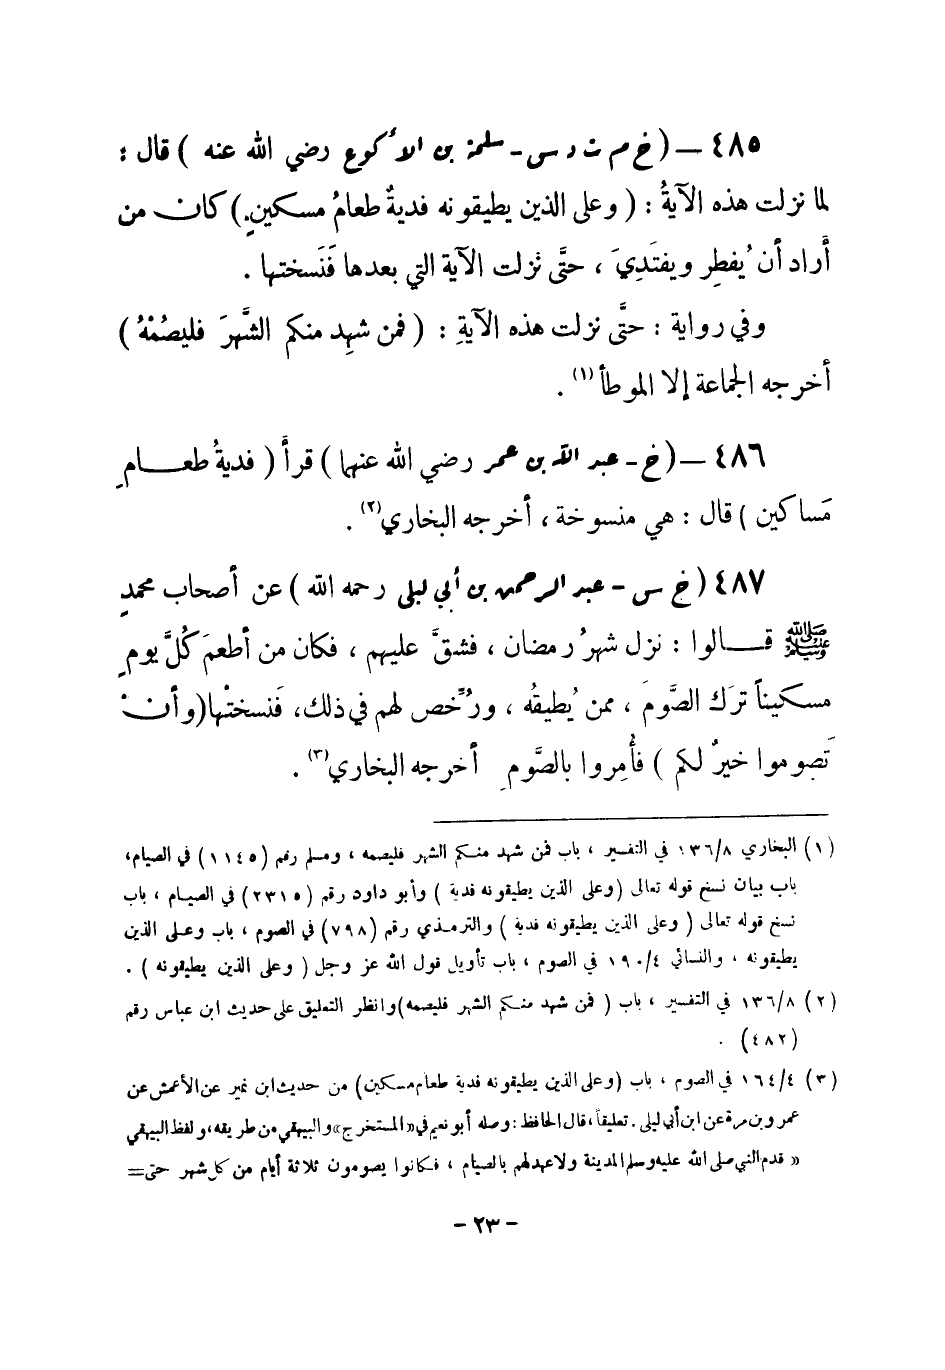 ٤٨٥ – ( خ م ت د س – سلمة بن الأكوع رضي الله عنه ) قال :
لما نزلت هذه الآيةُ : ( وعلى الذين يطيقونه فديةٌ طعامُ مسكينٍ ) كان من
أراد أن يُفطِر ويفتَدِيَ ، حتَّى نزلت الآية التي بعدها فَنَسختها .
وفي رواية : حتَّى نزلت هذه الآيةِ : ( فمن شهِد منكم الشَّهرَ فليصُمْهُ )
أخرجه الجماعة إلا الموطأ (١) .
٤٨٦ – ( خ – عبد الله بن عمر رضي الله عنهما ) قرأَ ( فديةُ طعامِ
مَساكين ) قال : هي منسوخة ، أخرجه البخاري (٢) .
٤٨٧ ( خ س – عبد الرحمن بن أبي ليلى رحمه الله ) عن أصحاب محمدٍ
ﷺ قالوا : نزل شهرُ رمضان ، فشقَّ عليهم ، فكان من أطعمَ كُلَّ يومٍ
مسكيناً ترَك الصَّومَ ، ممن يُطيقُه ، ورُخِّص لهم في ذلك، فَنسختْها ( وأنْ
تَصوموا خيرٌ لكم ) فأُمِروا بالصَّومِ أخرجه البخاري (٣) .
(١) البخاري ١٣٦/٨ في التفسير ، باب فمن شهد منكم الشهر فليصمه ، ومسلم رقم (١١٤٥) في الصيام،
باب بيان نسخ قوله تعالى (وعلى الذين يطيقونه فدية ) وأبو داود رقم (٢٣١٥) في الصيام ، باب
نسخ قوله تعالى ( وعلى الذين يطيقونه فدية ) والترمذي رقم (٧٩٨) في الصوم ، باب وعلى الذين
يطيقونه ، والنسائي ١٩٠/٤ في الصوم ، باب تأويل قول الله عز وجل ( وعلى الذين يطيقونه ) .
(٢) ١٣٦/٨ في التفسير ، باب ( فمن شهد منكم الشهر فليصمه) وانظر التعليق على حديث ابن عباس رقم
(٤٨٢) .
(٣) ١٦٤/٤ في الصوم ، باب (وعلى الذين يطيقونه فدية طعام مسكين) من حديث ابن نمير عن الأعمش عن
عمرو بن مرة عن ابن أبي ليلى . تعليقاً ، قال الحافظ : وصله أبو نعيم في « المستخرج » والبيهقي من طريقه، ولفظ البيهقي
« قدم النبي صلى الله عليه وسلم المدينة ولا عهد لهم بالصيام ، فكانوا يصومون ثلاثة أيام من كل شهر حتى =
– ٢٣ –